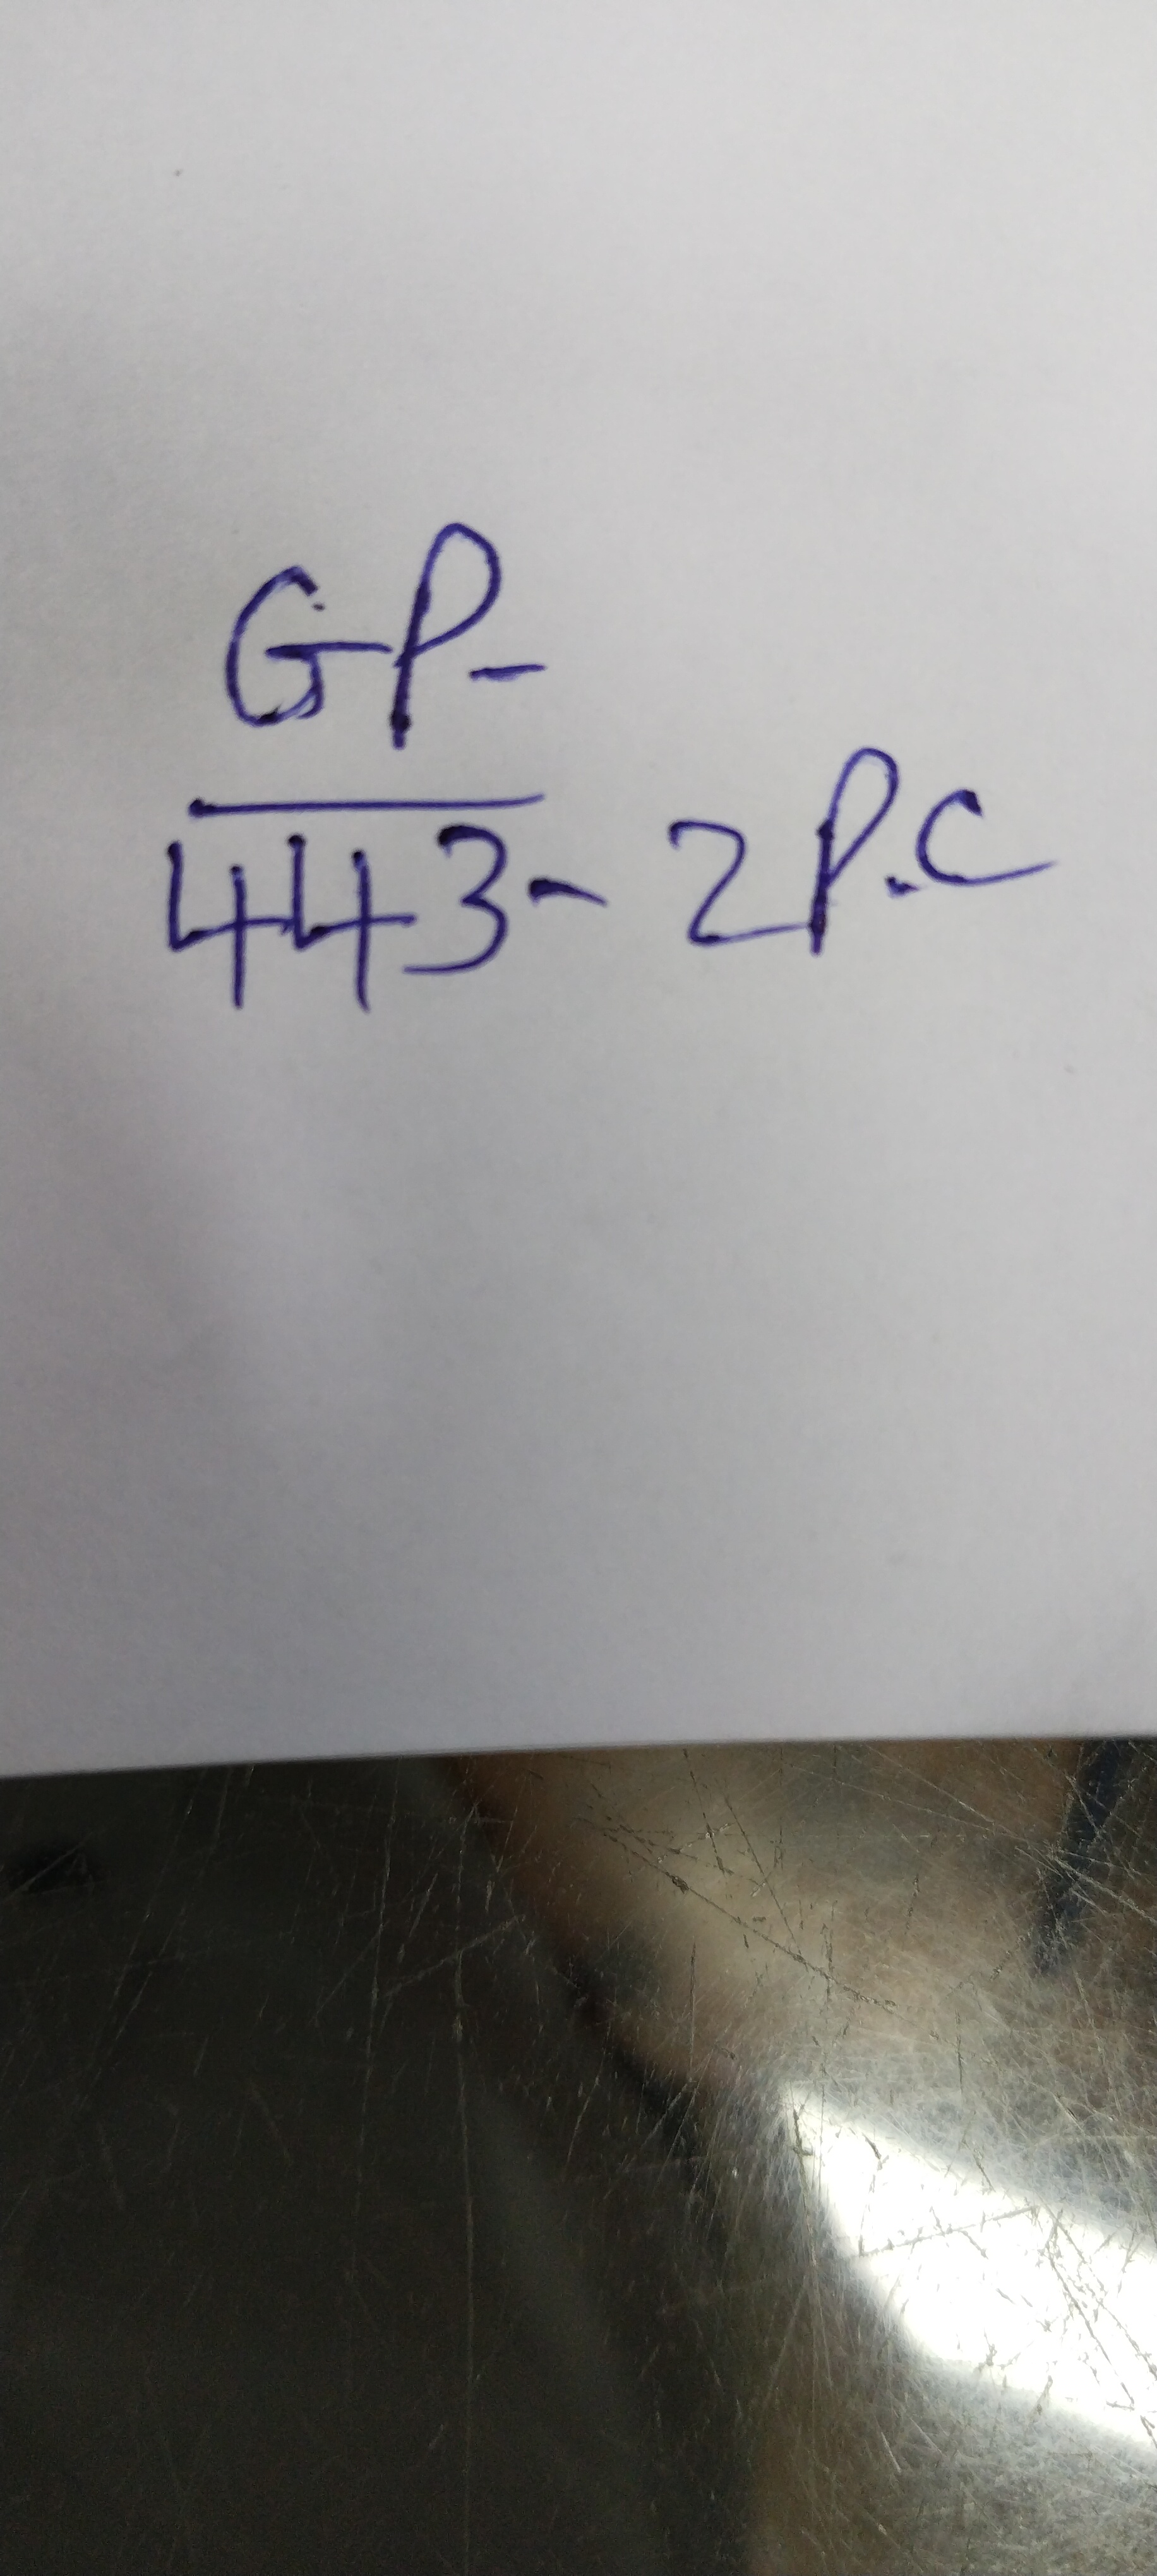 GP-
443- 2P.C